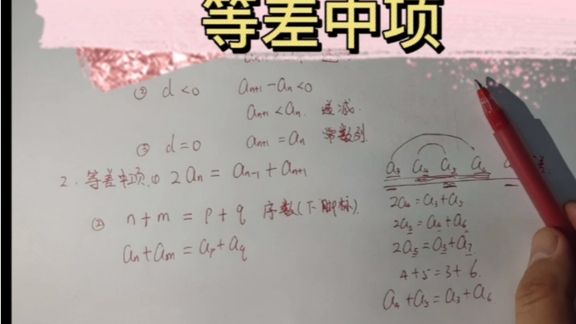 等差中项
② d<0 aₙ₊₁-aₙ<0
aₙ₊₁<aₙ. 递减.
③ d=0 aₙ₊₁=aₙ 常数列
2. 等差中项.① 2aₙ=aₙ₋₁+aₙ₊₁
② n+m=p+q 序数(下脚标).
aₙ+aₘ=aₚ+a_q
2a₄=a₃+a₅
2a₅=a₄+a₆
4+5=3+6.
a₄+a₅=a₃+a₆